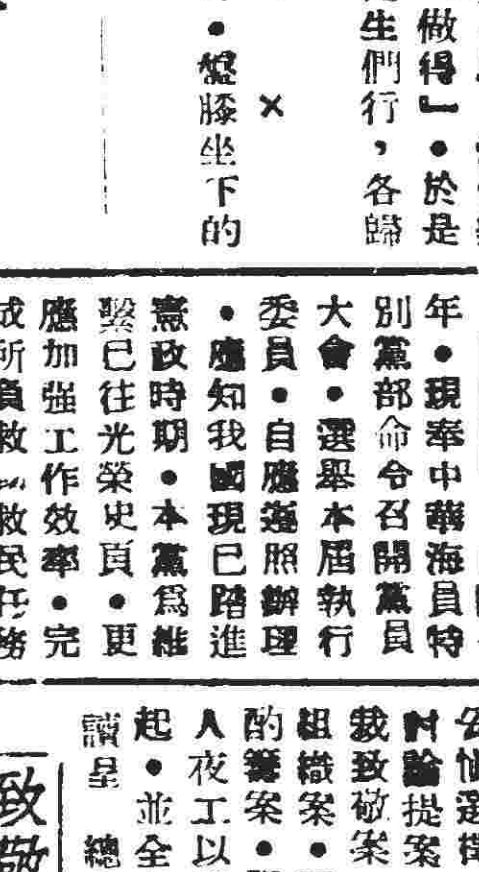 做得』•於是
生們行，各歸
×
•盤膝坐下的
年•現奉中華海員特
別黨部命令召開黨員
大會•選舉本屆執行
委員•自應遵照辦理
•應知我國現已踏進
憲政時期•本黨爲維
繫已往光榮史頁•更
應加强工作效率•完
成所負救 救民任務
選
討論提案
裁致敬案
組織案•
酌 案•
人夜工以
起•並全
讀呈　總
致敬